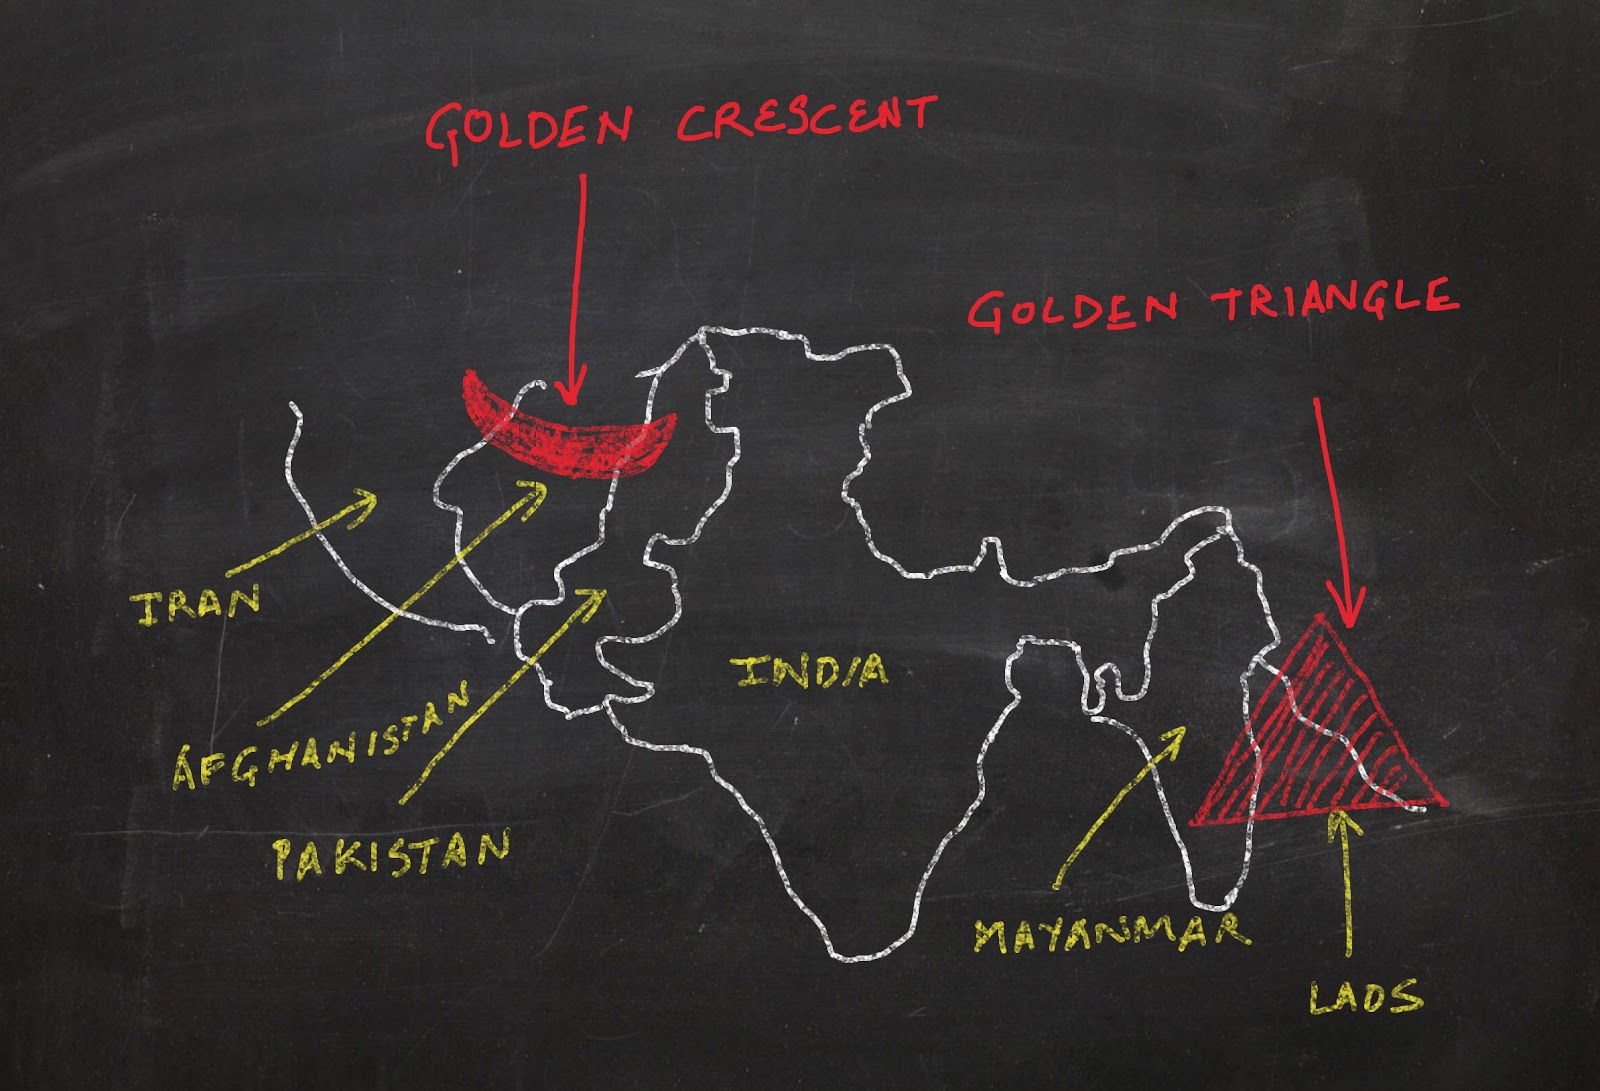 GOLDEN CRESCENT
GOLDEN TRIANGLE
IRAN
INDIA
AFGHANISTAN
PAKISTAN
MAYANMAR
LAOS